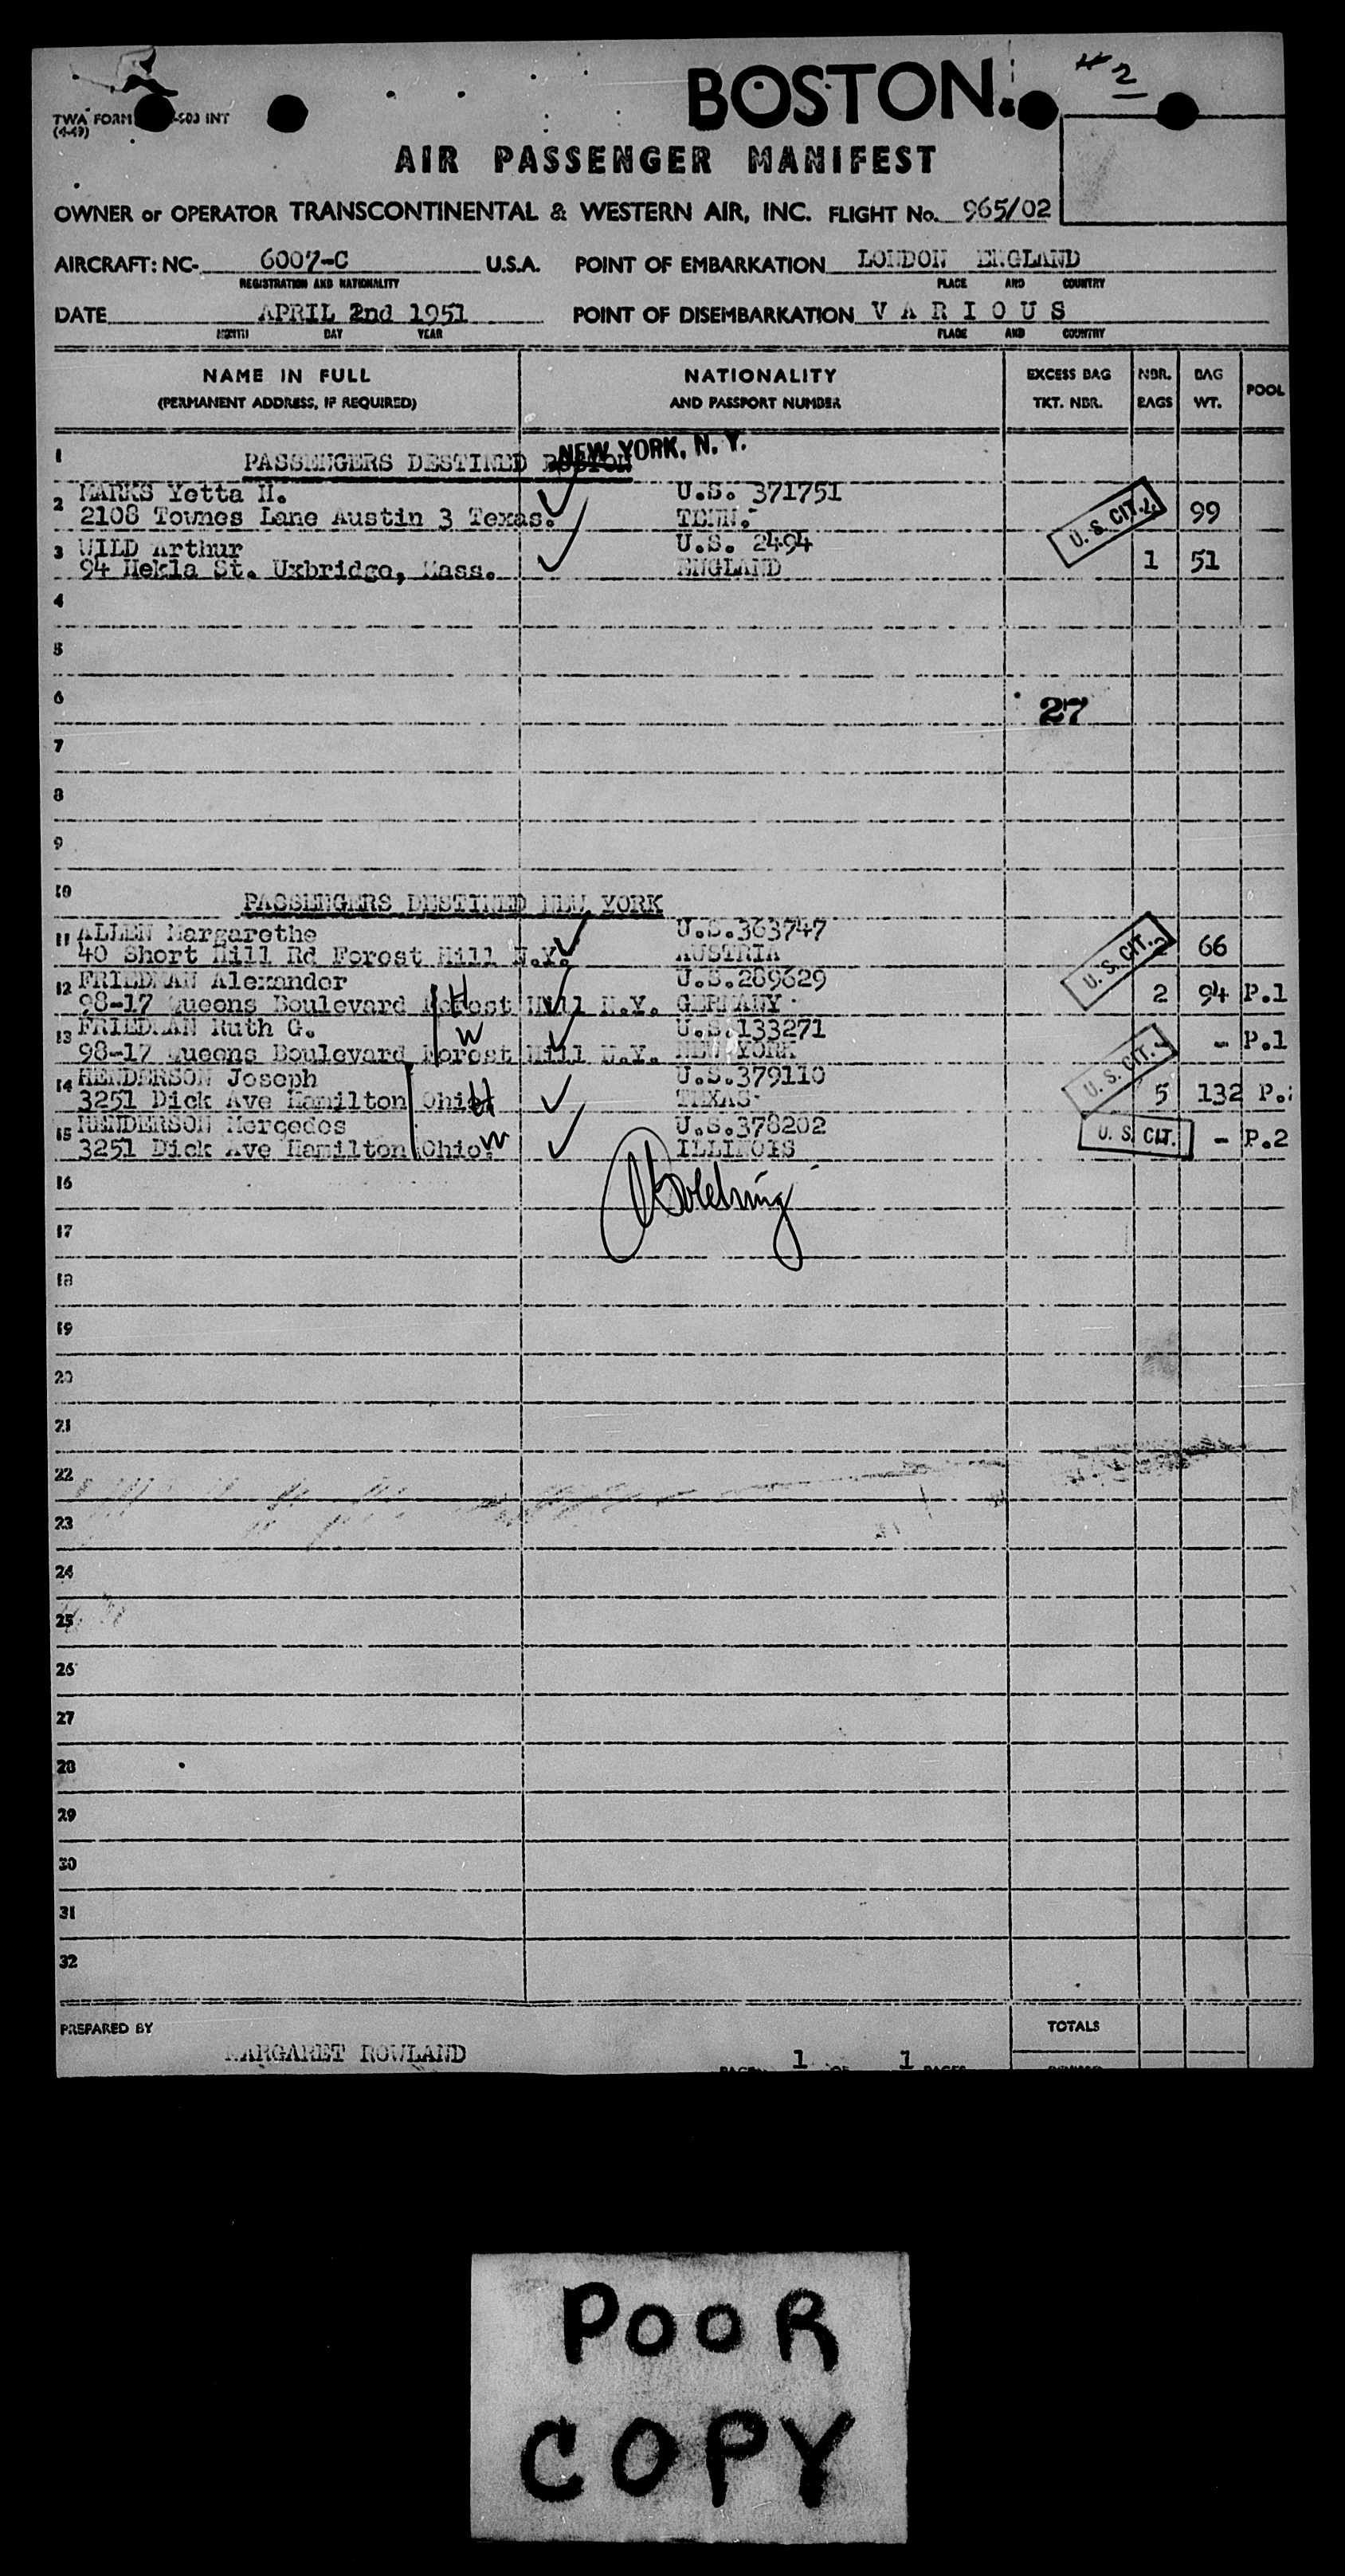 BOSTON. #2
TWA FORM 503 INT
(4-49)
AIR PASSENGER MANIFEST
OWNER or OPERATOR TRANSCONTINENTAL & WESTERN AIR, INC. FLIGHT No. 965/02
AIRCRAFT: NC- 6007-C U.S.A. POINT OF EMBARKATION LONDON ENGLAND
REGISTRATION AND NATIONALITY PLACE AND COUNTRY
DATE APRIL 2nd 1951 POINT OF DISEMBARKATION V A R I O U S
MONTH DAY YEAR PLACE AND COUNTRY
NAME IN FULL NATIONALITY EXCESS BAG NBR. BAG POOL
(PERMANENT ADDRESS, IF REQUIRED) AND PASSPORT NUMBER TKT. NBR. BAGS WT.
NEW YORK, N. Y.
1 PASSENGERS DESTINED BOSTON
2 MARKS Yetta H. U.S. 371751
2108 Townes Lane Austin 3 Texas. TENN. U. S. CIT. 99
3 WILD Arthur U.S. 2494
94 Hekla St. Uxbridge, Mass. ENGLAND 1 51
4
5
6 27
7
8
9
10 PASSENGERS DESTINED NEW YORK
11 ALLEN Margarethe U.S.363747
40 Short Hill Rd Forest Hill N.Y. AUSTRIA U. S. CIT. 2 66
12 FRIEDMAN Alexander H U.S.289629
98-17 Queens Boulevard Forest Hill N.Y. GERMANY 2 94 P.1
13 FRIEDMAN Ruth G. W U.S.133271
98-17 Queens Boulevard Forest Hill N.Y. NEW YORK U. S. CIT. - P.1
14 HENDERSON Joseph U.S.379110
3251 Dick Ave Hamilton Ohio H TEXAS 5 132 P.
15 HENDERSON Mercedes U.S.378202
3251 Dick Ave Hamilton Ohio. W ILLINOIS U. S. CIT. - P.2
16
17
18
19
20
21
22
23
24
25
26
27
28
29
30
31
32
PREPARED BY TOTALS
MARGARET ROWLAND PAGE 1 OF 1 PAGES
POOR
COPY